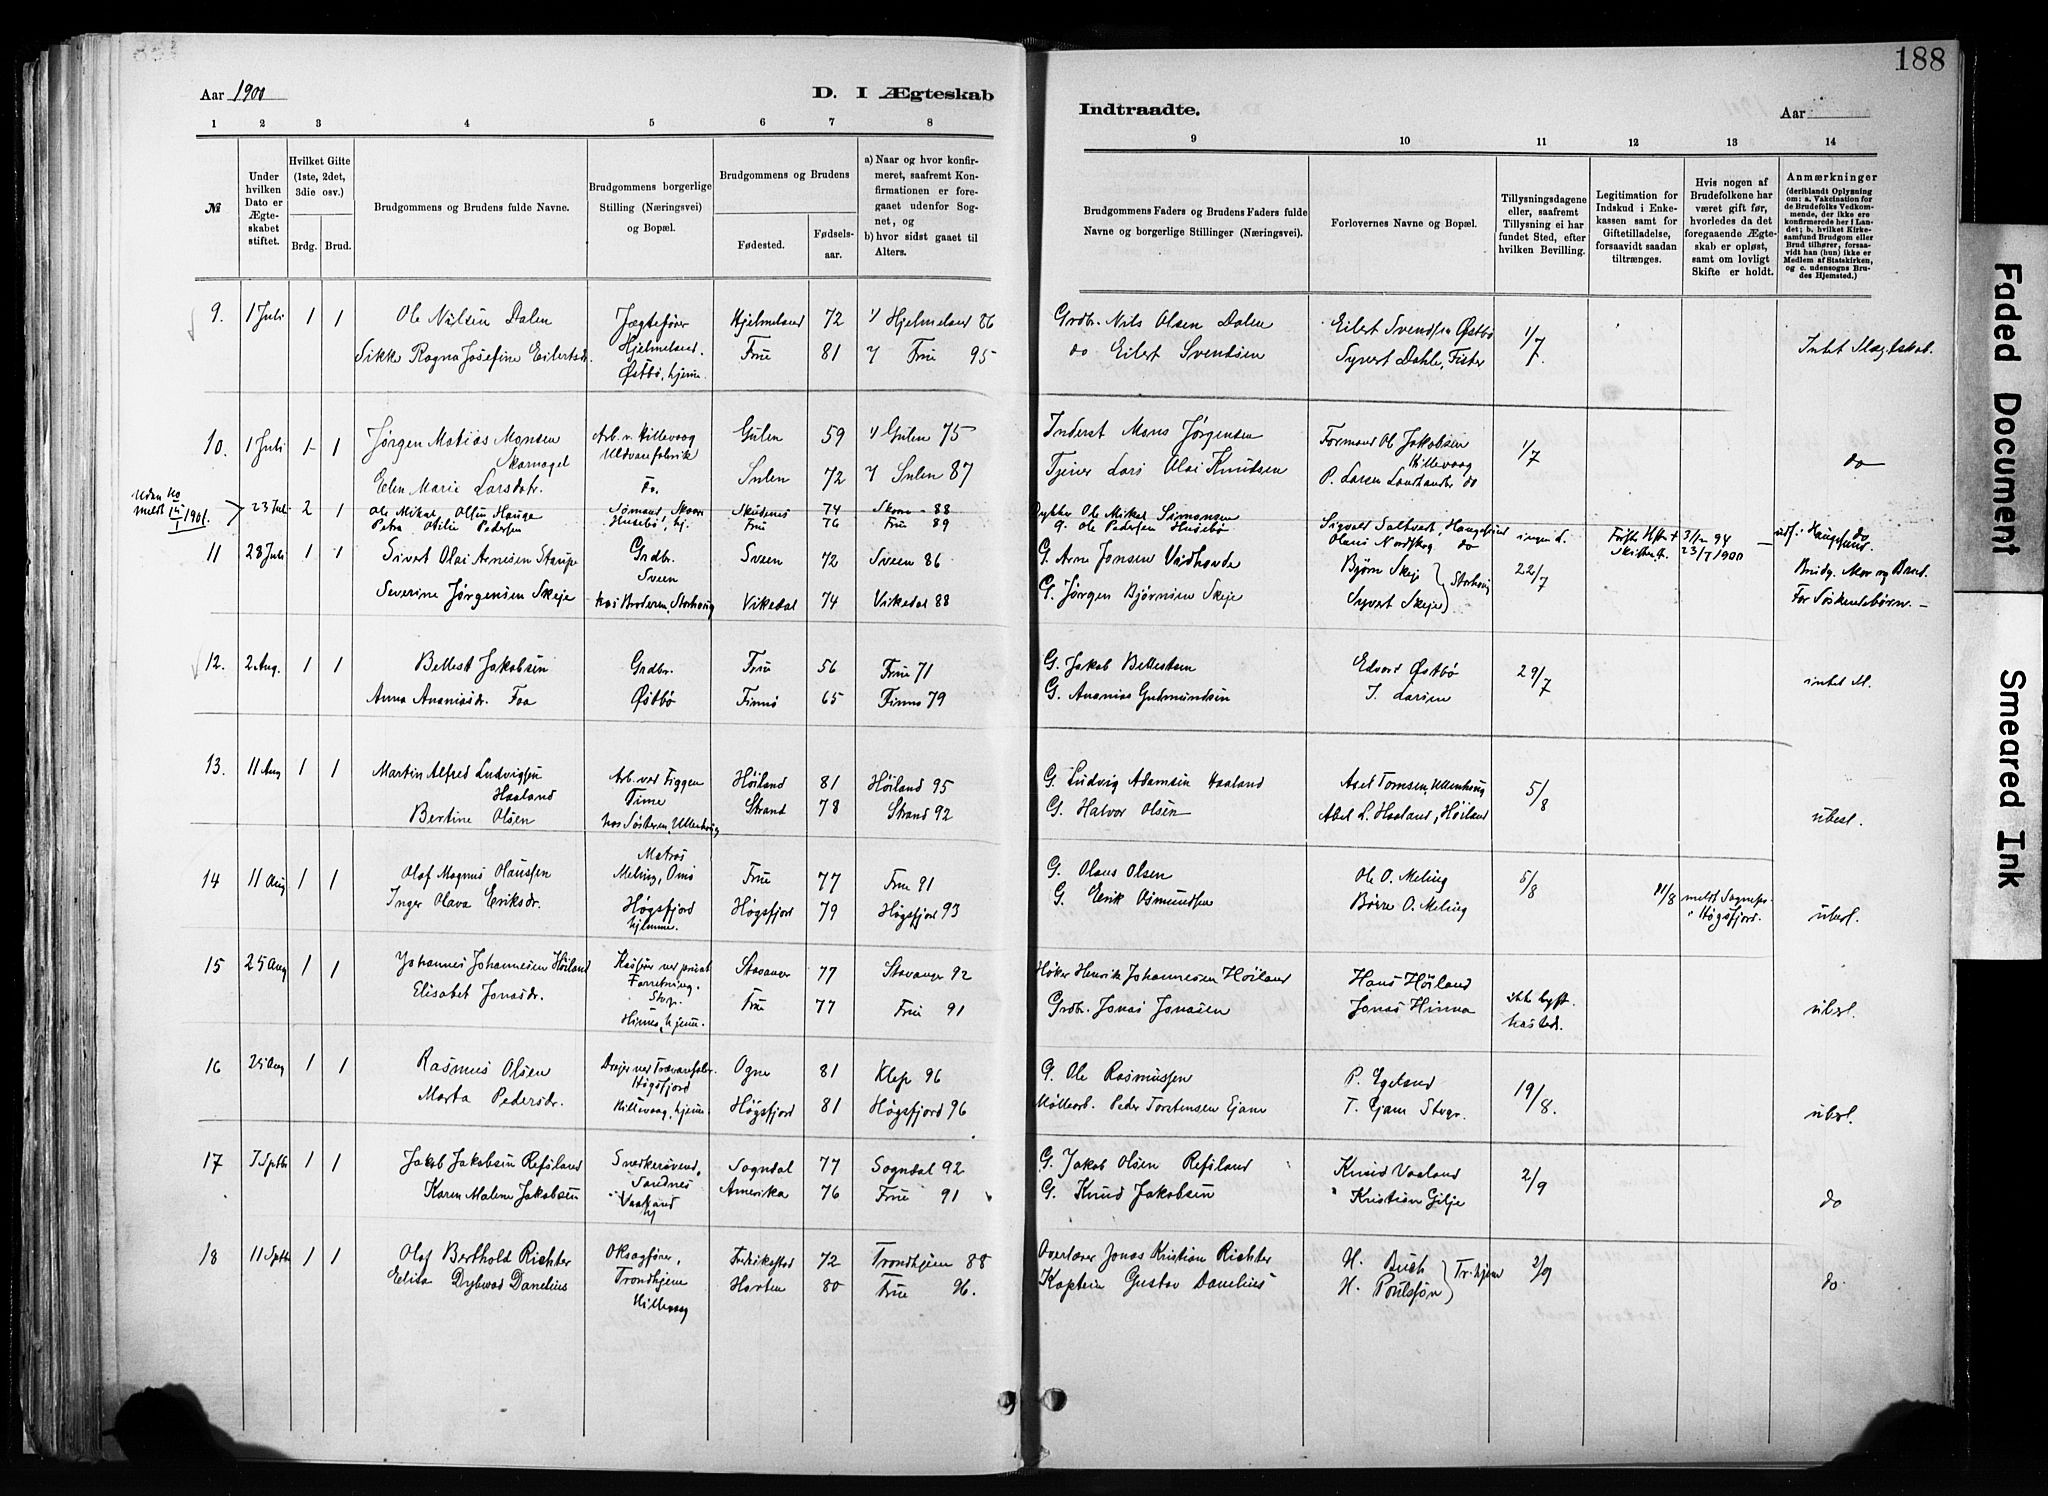 188
Aar 1900
D. I Ægteskab
Indtraadte.
Aar
1 2 3 4 5 6 7 8
9 10 11 12 13 14
№
Under hvilken Dato er Ægteskabet stiftet.
Hvilket Gifte (1ste, 2det, 3die osv.)
Brdg. Brud.
Brudgommens og Brudens fulde Navne.
Brudgommens borgerlige Stilling (Næringsvei) og Bopæl.
Brudgommens og Brudens
Fødested. Fødselsaar.
a) Naar og hvor konfirmeret, saafremt Konfirmationen er foregaaet udenfor Sognet, og
b) hvor sidst gaaet til Alters.
Brudgommens Faders og Brudens Faders fulde Navne og borgerlige Stillinger (Næringsvei).
Forlovernes Navne og Bopæl.
Tillysningsdagene eller, saafremt Tillysning ei har fundet Sted, efter hvilken Bevilling.
Legitimation for Indskud i Enkekassen samt for Giftetilladelse, forsaavidt saadan tiltrænges.
Hvis nogen af Brudefolkene har været gift før, hvorledes da det foregaaende Ægteskab er opløst, samt om lovligt Skifte er holdt.
Anmærkninger
(deriblandt Oplysning om: a. Vakcination for de Brudefolks Vedkommende, der ikke ere konfirmerede her i Landet; b. hvilket Kirkesamfund Brudgom eller Brud tilhører, forsaavidt han (hun) ikke er Medlem af Statskirken, og c. udensogns Brudes Hjemsted.)
9. 1 Juli 1 1 Ole Nilsen Dalen Jægtefører Hjelmeland 72 Hjelmeland 86 Grdbr. Nils Olsen Dalen Eilert Svendsen Østbø 1/7 Intet Slægtskab.
Sikke Ragna Josefine Eilertsdr. Hjelmeland. Frue 81 Frue 95 do Eilert Svendsen Syvert Dahle, Fister
Østbø, hjeme.
10. 1 Juli 1 1 Jørgen Matias Monsen Arb. v. Hillevaag Gulen 59 Gulen 75 Inderst Mons Jørgensen Formand Ol. Jakobsen 1/7 do
Uldvarefabrik Hillevaag
Elen Marie Larsdotr. Fr. Sulen 72 Sulen 87 Tjener Lars Olai Knudsen P. Larsen do
23 Juli 2 1 Ole Mikal Olsen Hauge Sømand Skudenes 74 88 Ole Mikal Simonsen Sigvald Saltvedt, Haugesund ingen
1901. Petra Otilie Pedersen Husebø, hj. Frue 76 Frue 89 G. Ole Pedersen Husebø Olaus Nordskog do 23/7 1900 Haugesund.
11 28 Juli 1 1 Sivert Olai Arnesen Staupe Grdbr. Sveen 72 Sveen 86 G. Arne Jonsen Bjørn Skeje 22/7 Brudg. Mor og Brud.
Sveen Storhaug
Severine Jørgensen Skeje hos Broderen, Storhaug Vikedal 74 Vikedal 88 G. Jørgen Bjørnsen Skeje Syvert Skeje Far Søskendebørn. –
12. 2 Aug. 1 1 Bellest Jakobsen Grdbr. Frue 56 Frue 71 G. Jakob Bellestsen Edvard Østbø 29/7 intet Sl.
Anna Ananiasdr. Faa Østbø Finnø 65 Finnø 79 G. Ananias Gudmundsen J. Larsen
13. 11 Aug 1 1 Martin Alfred Ludvigsen Arb. ved Figgen Høiland 81 Høiland 95 G. Ludvig Adamsen Haaland Axel Tomsen, Ullenhaug 5/8
Haaland Time
Bertine Olsen hos Søsteren, Ullenhaug Strand 78 Strand 92 G. Halvor Olsen Abel L. Haaland, Høiland ubesl.
14 11 Aug 1 1 Olaf Magnus Olaussen Matros Frue 77 Frue 91 G. Olaus Olsen Ole O. Meling 5/8 11/8 meldt Sognepr.
Meling, Omø i Høgsfjord.
Inger Olava Eriksdr. Høgsfjord Høgsfjord 79 Høgsfjord 93 G. Erik Osmundsen Børre O. Meling ubesl.
hjemme.
15 25 Aug 1 1 Johannes Johannesen Høiland Kasserer ved privat Stavanger 77 Stavanger 92 Høker Henrik Johannesen Høiland Hans Høiland ikke lyst.
Forretning. Stvgr.
Elisabet Jonasdr. Hinna, hjem. Frue 77 Frue 91 Grdbr. Jonas Jonasen Jonas Hinna ubesl.
16 25 Aug 1 1 Rasmus Olsen Drejer ved Trævarefabr. Ogne 81 Klep 96 G. Ole Rasmussen P. Egeland 19/8.
Høgsfjord
Marta Pedersdr. Hillevaag, hjem. Høgsfjord 81 Høgsfjord 96 Møllearb. Peder Torstensen Ejane T. Ejane Stvgr. ubesl.
17 7 Septbr 1 1 Jakob Jakobsen Refsland Snedkersvend, Sogndal 77 Sogndal 92 G. Jakob Olsen Refsland Knud Vaaland 2/9
Sandnes
Karen Malene Jakobsen Vaaland Amerika 76 Frue 91 G. Knud Jakobsen Kristian Gilje do
hj
18 11 Septbr 1 1 Olaf Berthold Richter Oksagfører, Fredrikstad 72 Trondhjem 88 Overlærer Jonas Kristian Richter H. Buch Tr.hjem 2/9
Trondhjem
Elisa Dybwad Danelius Hillevaag Horten 80 Frue 96. Kaptein Gustav Danelius H. Poulssøn do.
Faded Document
Smeared Ink